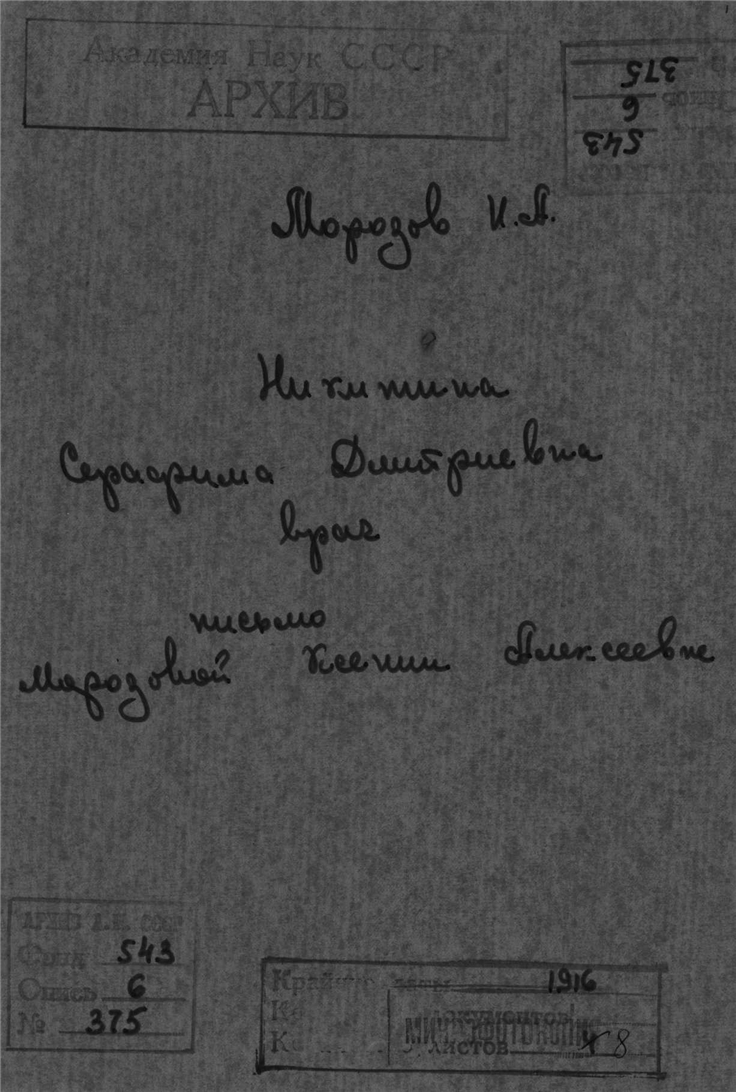 Академия Наук СССР
АРХИВ
375
6
543
Морозов Н.А.
Никитина
Серафима Дмитриевна
врач
письмо
Морозовой Ксении Алексеевне
АРХИВ А.Н. СССР
Фонд 543
Опись 6
№ 375
Крайние даты 1916
К документов
К листов 8